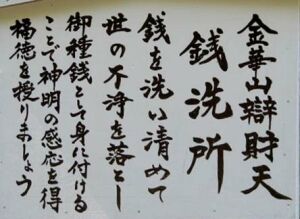 金華山辯財天
銭洗所
銭を洗い清めて
世の不浄を落とし
御種銭として身に付ける
ことで神明の感応を得
福徳を授りましょう